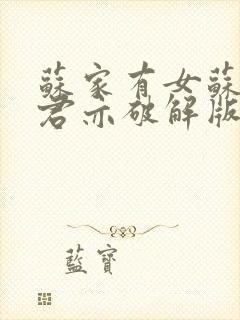 蘇家有女蘇
君亦破解版
藍寶